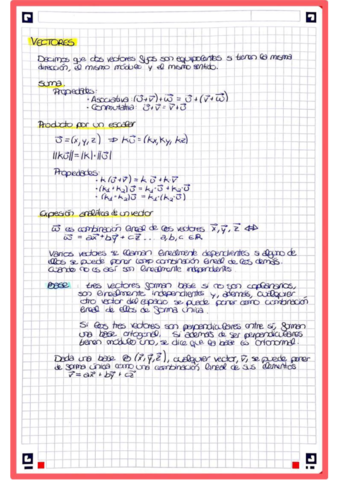 VECTORES
Decimos que dos vectores fijos son equipolentes si tienen la misma
dirección, el mismo módulo y el mismo sentido.
Suma
Propiedades:
· Asociativa (u⃗+v⃗)+w⃗ = u⃗+(v⃗+w⃗)
· Conmutativa u⃗+v⃗ = v⃗+u⃗
Producto por un escalar
u⃗=(x,y,z) ⇒ ku⃗=(kx,ky,kz)
||ku⃗||=|k|·||u⃗||
Propiedades:
· k(u⃗+v⃗) = k u⃗+k v⃗
· (k₁+k₂)u⃗ = k₁·u⃗+k₂·u⃗
· (k₁·k₂)u⃗ = k₁·(k₂·u⃗)
Expresión analítica de un vector
w⃗ es combinación lineal de los vectores x⃗, y⃗, z⃗ ⇔
w⃗ = ax⃗+by⃗+cz⃗... a,b,c ∈ R
Varios vectores se llaman linealmente dependientes si alguno de
ellos se puede poner como combinación lineal de los demás.
Cuando no es así son linealmente independientes
Base: tres vectores forman base si no son coplanarios,
son linealmente independientes y, además, cualquier
otro vector del espacio se puede poner como combinación
lineal de ellos de forma única.
Si los tres vectores son perpendiculares entre sí, forman
una base ortogonal. Si además de ser perpendiculares
tienen módulo uno, se dice que la base es ortonormal.
Dada una base B(x⃗,y⃗,z⃗), cualquier vector, v⃗, se puede poner
de forma única como una combinación lineal de sus elementos
v⃗ = ax⃗+by⃗+cz⃗